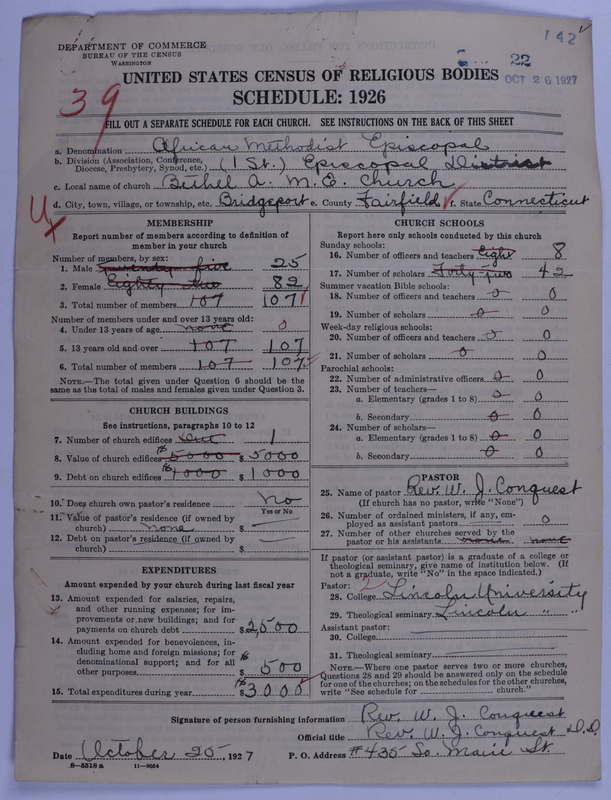 142
DEPARTMENT OF COMMERCE
BUREAU OF THE CENSUS
WASHINGTON
22
OCT 26 1927
UNITED STATES CENSUS OF RELIGIOUS BODIES
SCHEDULE: 1926
39
FILL OUT A SEPARATE SCHEDULE FOR EACH CHURCH. SEE INSTRUCTIONS ON THE BACK OF THIS SHEET
a. Denomination African Methodist Episcopal
b. Division (Association, Conference, Diocese, Presbytery, Synod, etc.) (1 St.) Episcopal District
c. Local name of church Bethel A. M. E. Church
d. City, town, village, or township, etc. Bridgeport e. County Fairfield f. State Connecticut
MEMBERSHIP
Report number of members according to definition of
member in your church
Number of members, by sex:
1. Male Twenty five 25
2. Female Eighty Two 82
3. Total number of members 107 107
Number of members under and over 13 years old:
4. Under 13 years of age none 0
5. 13 years old and over 107 107
6. Total number of members 107 107
NOTE.—The total given under Question 6 should be the
same as the total of males and females given under Question 3.
CHURCH BUILDINGS
See instructions, paragraphs 10 to 12
7. Number of church edifices One 1
8. Value of church edifices 5000 $ 5000
9. Debt on church edifices 1000 $ 1000
10. Does church own pastor's residence No
Yes or No
11. Value of pastor's residence (if owned by
church) none $
12. Debt on pastor's residence (if owned by
church) $
EXPENDITURES
Amount expended by your church during last fiscal year
13. Amount expended for salaries, repairs,
and other running expenses; for im-
provements or new buildings; and for
payments on church debt $2500
14. Amount expended for benevolences, in-
cluding home and foreign missions; for
denominational support; and for all
other purposes $ 500
15. Total expenditures during year $3000
CHURCH SCHOOLS
Report here only schools conducted by this church
Sunday schools:
16. Number of officers and teachers Eight 8
17. Number of scholars Forty Two 42
Summer vacation Bible schools:
18. Number of officers and teachers 0 0
19. Number of scholars 0 0
Week-day religious schools:
20. Number of officers and teachers 0 0
21. Number of scholars 0 0
Parochial schools:
22. Number of administrative officers 0 0
23. Number of teachers—
a. Elementary (grades 1 to 8) 0 0
b. Secondary 0 0
24. Number of scholars—
a. Elementary (grades 1 to 8) 0 0
b. Secondary 0 0
PASTOR
25. Name of pastor Rev. W. J. Conquest
(If church has no pastor, write "None")
26. Number of ordained ministers, if any, em-
ployed as assistant pastors 0
27. Number of other churches served by the
pastor or his assistants none none
If pastor (or assistant pastor) is a graduate of a college or
theological seminary, give name of institution below. (If
not a graduate, write "No" in the space indicated.)
Pastor:
28. College Lincoln University
29. Theological seminary Lincoln " "
Assistant pastor:
30. College
31. Theological seminary
NOTE.—Where one pastor serves two or more churches,
Questions 28 and 29 should be answered only on the schedule
for one of the churches; on the schedules for the other churches,
write "See schedule for church."
Signature of person furnishing information Rev. W. J. Conquest
Official title Rev. W. J. Conquest D.D.
Date October 25, 1927 P. O. Address #435 So. Main St.
8—5518 a 11—9024